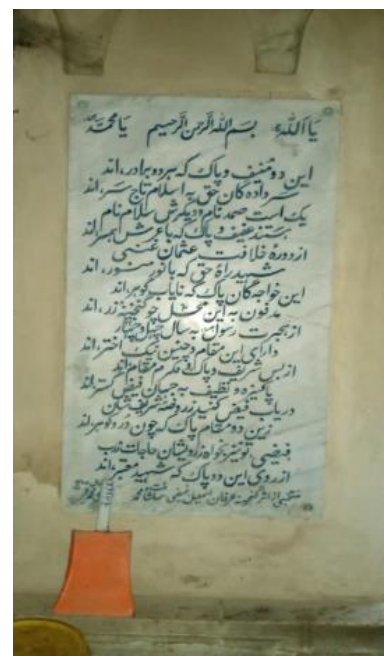 یا الله بسم الله الرحمن الرحیم یا محمد
این دو منیف و پاک که هر دو برادر، اند
سر داده گان حق به اسلام تاج سر، اند
یک است صمد نام و دیگرش سلام نام
هستند عفیف و پاک که با عرش همسر، اند
از دورهٔ خلافت عثمان غنی
شهید راه حق که با نور منور، اند
این خواجه گان پاک که نایاب گوهر، اند
مدفون به این محل چو گنجینه زر، اند
از هجرت رسول به سال چهل و چهار
دارای این مقام و چنین نیک اختر، اند
از بس شریف و پاک و مکرم مقام اند
پاکیزه و نظیف به جهان فیض گستر، اند
دریاب فیض گنبد روضه شریف شان
زین دو مقام پاک که چون در و گوهر، اند
فیضی تو نیز بخواه زویشان حاجات زیب
از روی این دو پاک که شهید معتبر، اند